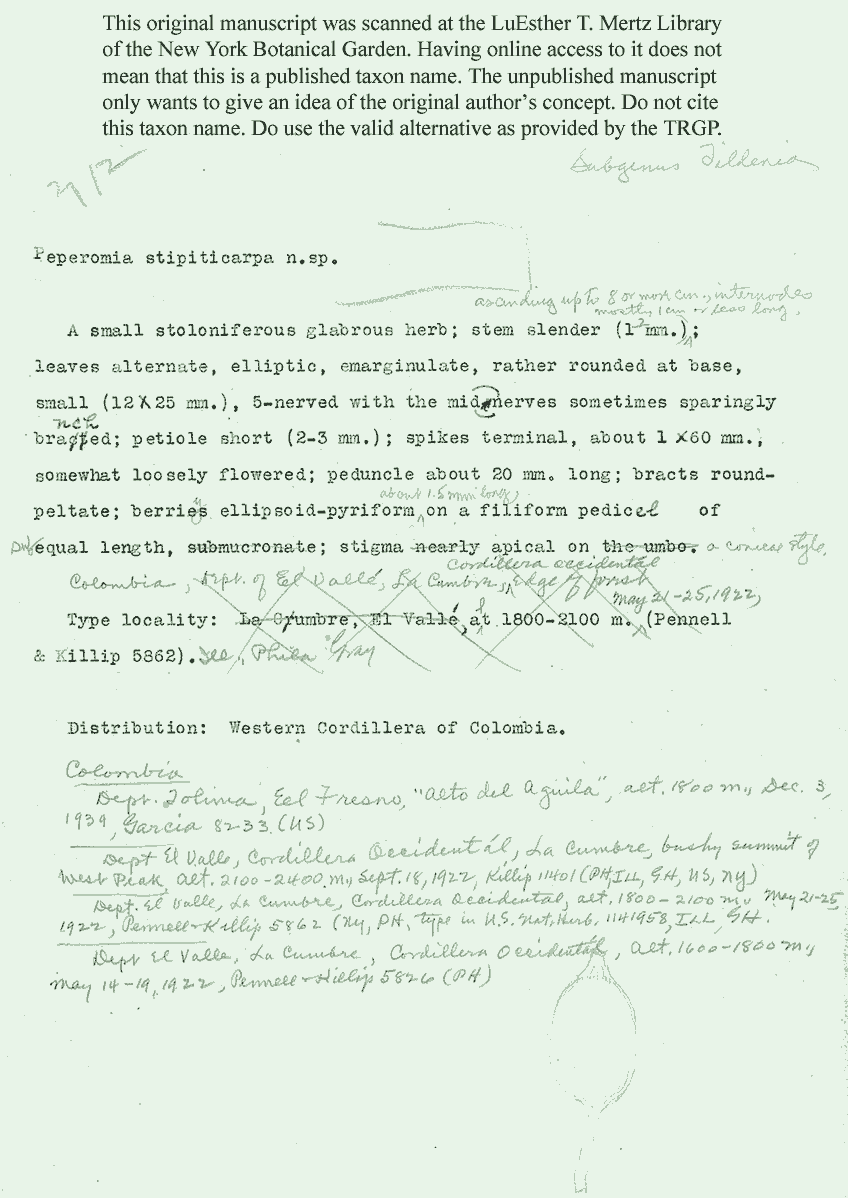 This original manuscript was scanned at the LuEsther T. Mertz Library
of the New York Botanical Garden. Having online access to it does not
mean that this is a published taxon name. The unpublished manuscript
only wants to give an idea of the original author's concept. Do not cite
this taxon name. Do use the valid alternative as provided by the TRGP.
Subgenus Tildenia
Peperomia stipiticarpa n.sp.
ascending up to 8 or more cm., internodes
mostly 1 cm or less long,
A small stoloniferous glabrous herb; stem slender (1-2 mm.);
leaves alternate, elliptic, emarginulate, rather rounded at base,
small (12X25 mm.), 5-nerved with the midnerves sometimes sparingly
nch
braced; petiole short (2-3 mm.); spikes terminal, about 1 X60 mm.,
somewhat loosely flowered; peduncle about 20 mm. long; bracts round-
about 1.5 mm long,
peltate; berries ellipsoid-pyriform on a filiform pedicel of
equal length, submucronate; stigma nearly apical on the umbo. a conical style.
Cordillera occidental
Colombia, Dept. of El Vallé, La Cumbre, Edge of forest
May 21-25, 1922,
Type locality: La Crumbre, El Vallé, at 1800-2100 m. (Pennell
& Killip 5862). Phila Gray
Distribution: Western Cordillera of Colombia.
Colombia
Dept. Tolima, Eel Fresno, "Alto del Aguila", alt. 1800 m., Dec. 3,
1939, Garcia 8233 (US)
Dept El Valle, Cordillera Occidentál, La Cumbre, bushy summit of
West Peak, alt. 2100-2400 m., Sept. 18, 1922, Killip 11401 (PH, ILL, GH, US, NY)
Dept. El Valle, La Cumbre, Cordillera Occidental, alt. 1800-2100 m., May 21-25,
1922, Pennell & Killip 5862 (NY, PH, type in U.S. Nat. Herb. 1141958, ILL, GH.
Dept El Valle, La Cumbre, Cordillera Occidental, alt. 1600-1800 m.,
May 14-19, 1922, Pennell & Killip 5826 (PH)